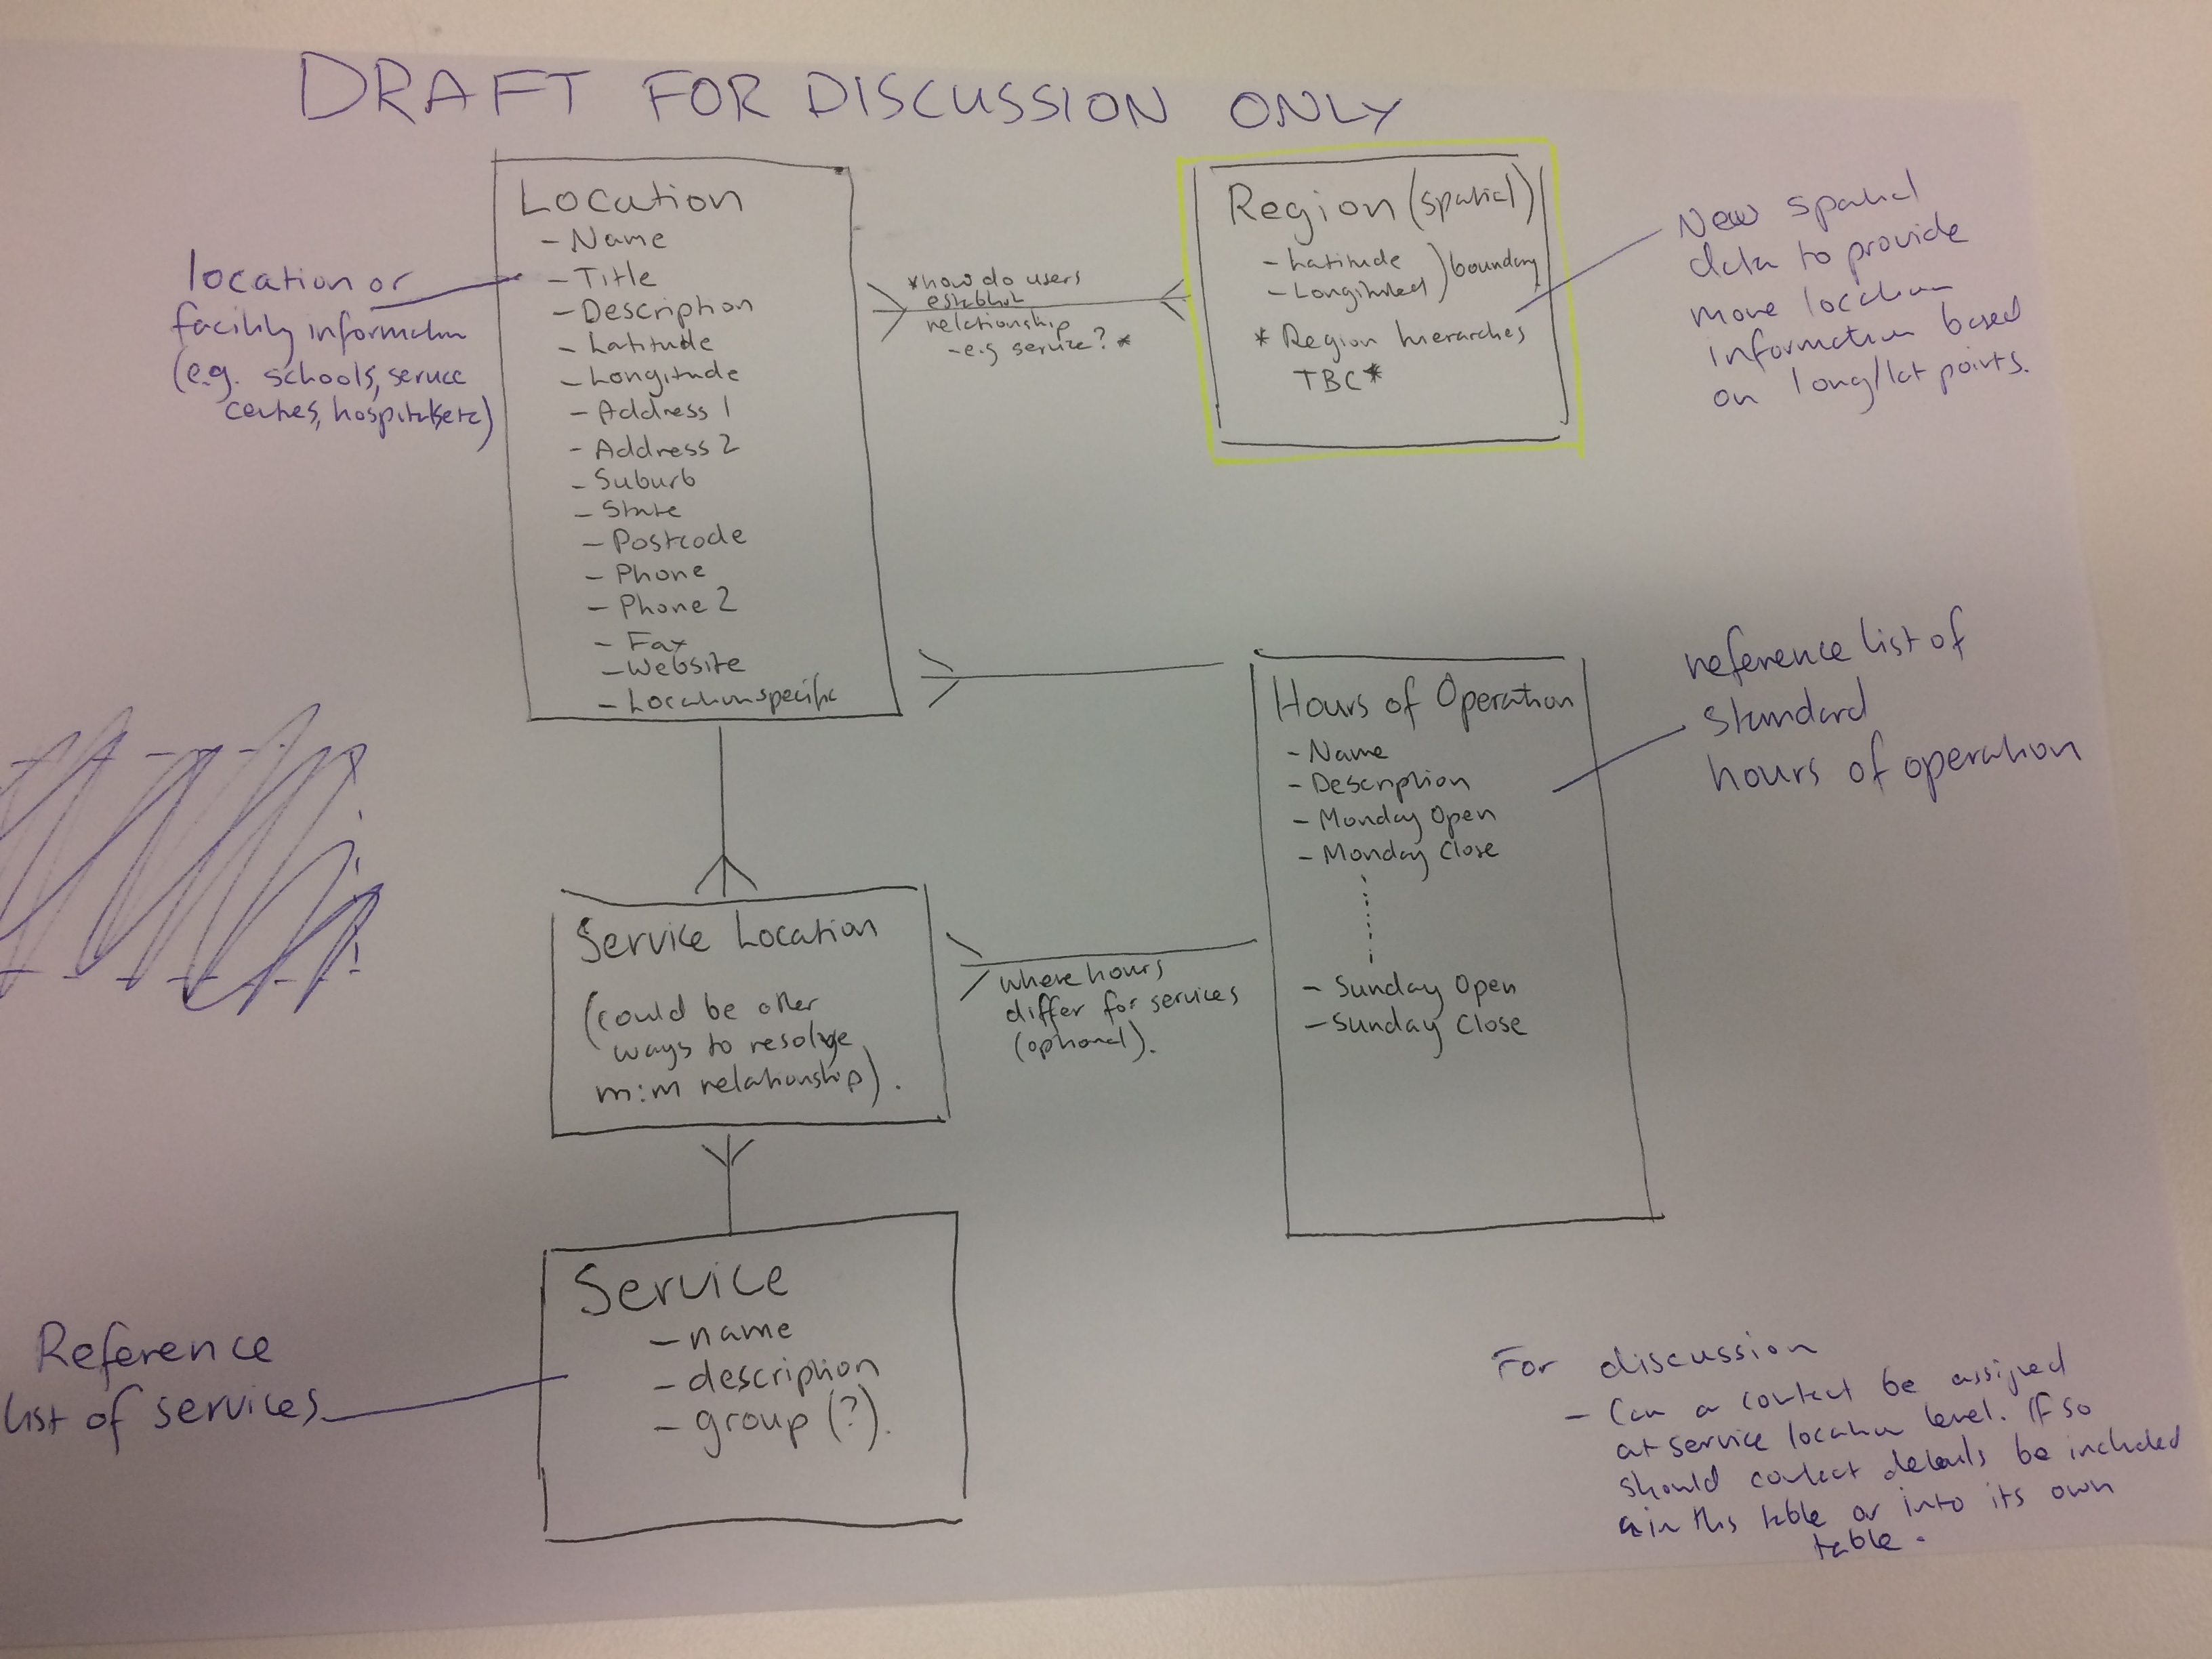 DRAFT FOR DISCUSSION ONLY
Location
- Name
- Title
- Description
- Latitude
- Longitude
- Address 1
- Address 2
- Suburb
- State
- Postcode
- Phone
- Phone 2
- Fax
- Website
- Location specific
location or
facility information
(e.g. schools, service
centres, hospitals etc)
*how do users
establish
relationship
- e.g service? *
Region (spatial)
- Latitude
- Longitude
) boundary
* Region hierarches
TBC *
New spatial
data to provide
more location
information based
on long/lat points.
Hours of Operation
- Name
- Description
- Monday Open
- Monday Close
- Sunday Open
- Sunday Close
reference list of
standard
hours of operation
Service Location
(could be other
ways to resolve
m:m relationship).
where hours
differ for services
(optional).
Service
- name
- description
- group (?).
Reference
list of services
For discussion
- Can a contact be assigned
at service location level. If so
should contact details be included
in this table or into its own
table.